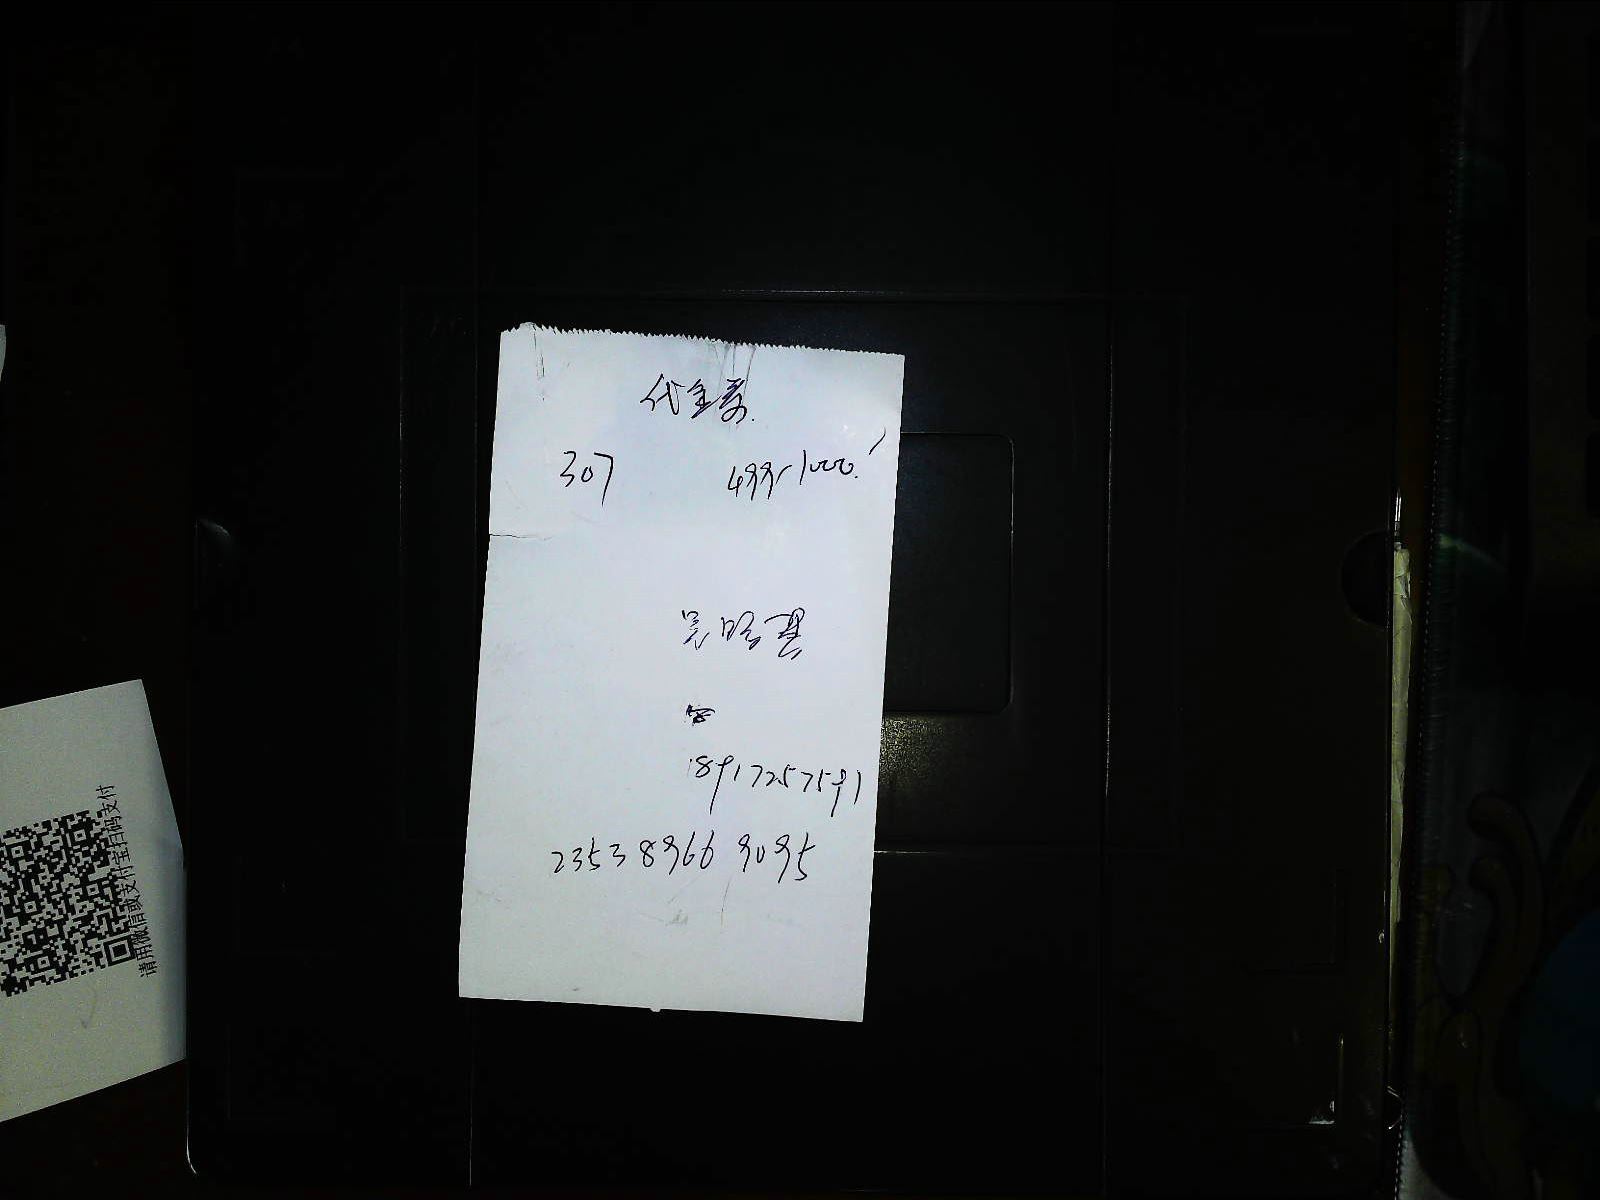 代金券
307 499-1000.
18917257591
2353 8966 9095
请用微信或支付宝扫码支付